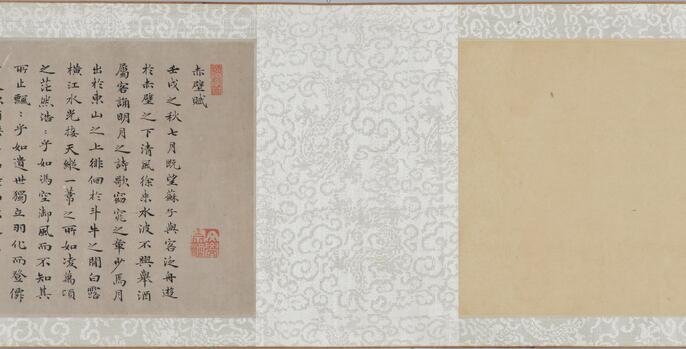 赤壁賦
壬戌之秋七月既望蘇子與客泛舟遊
於赤壁之下清風徐來水波不興舉酒
屬客誦明月之詩歌窈窕之章少焉月
出於東山之上徘徊於斗牛之間白露
橫江水光接天縱一葦之所如凌萬頃
之茫然浩〻乎如馮空御風而不知其
所止飄〻乎如遺世獨立羽化而登僊